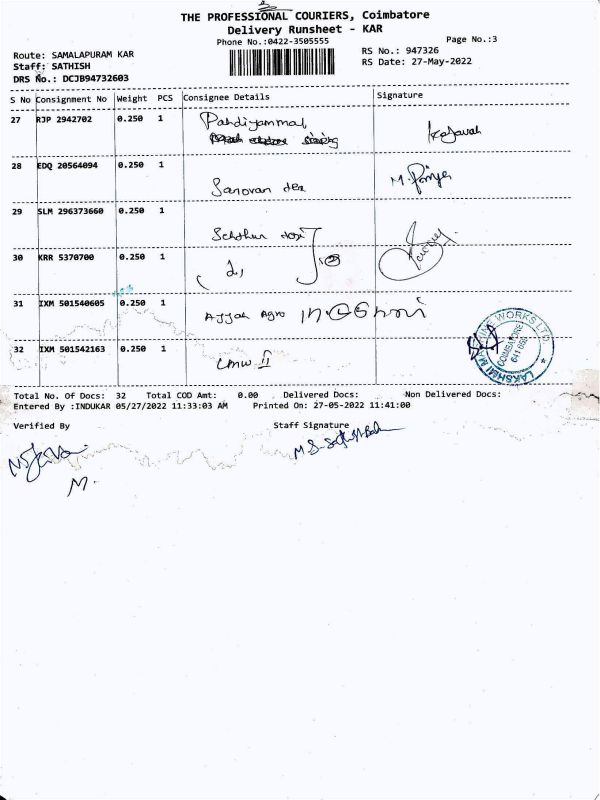 THE PROFESSIONAL COURIERS, Coimbatore
Delivery Runsheet - KAR
Phone No.:0422-3505555
Page No.:3
Route: SAMALAPURAM KAR
RS No.: 947326
Staff: SATHISH
RS Date: 27-May-2022
DRS No.: DCJB94732603
S No Consignment No Weight PCS Consignee Details Signature
27 RJP 2942702 0.250 1 Pandiyammal
28 EDQ 20564094 0.250 1 Sarovan tex M. Priya
29 SLM 296373660 0.250 1
30 KRR 5370700 0.250 1
31 IXM 501540605 0.250 1 Ajjah Agro
32 IXM 501542163 0.250 1 LMW II
LAKSHMI MACHINE WORKS LTD
COIMBATORE
Total No. Of Docs: 32 Total COD Amt: 0.00 Delivered Docs: Non Delivered Docs:
Entered By :INDUKAR 05/27/2022 11:33:03 AM Printed On: 27-05-2022 11:41:00
Verified By Staff Signature
M.